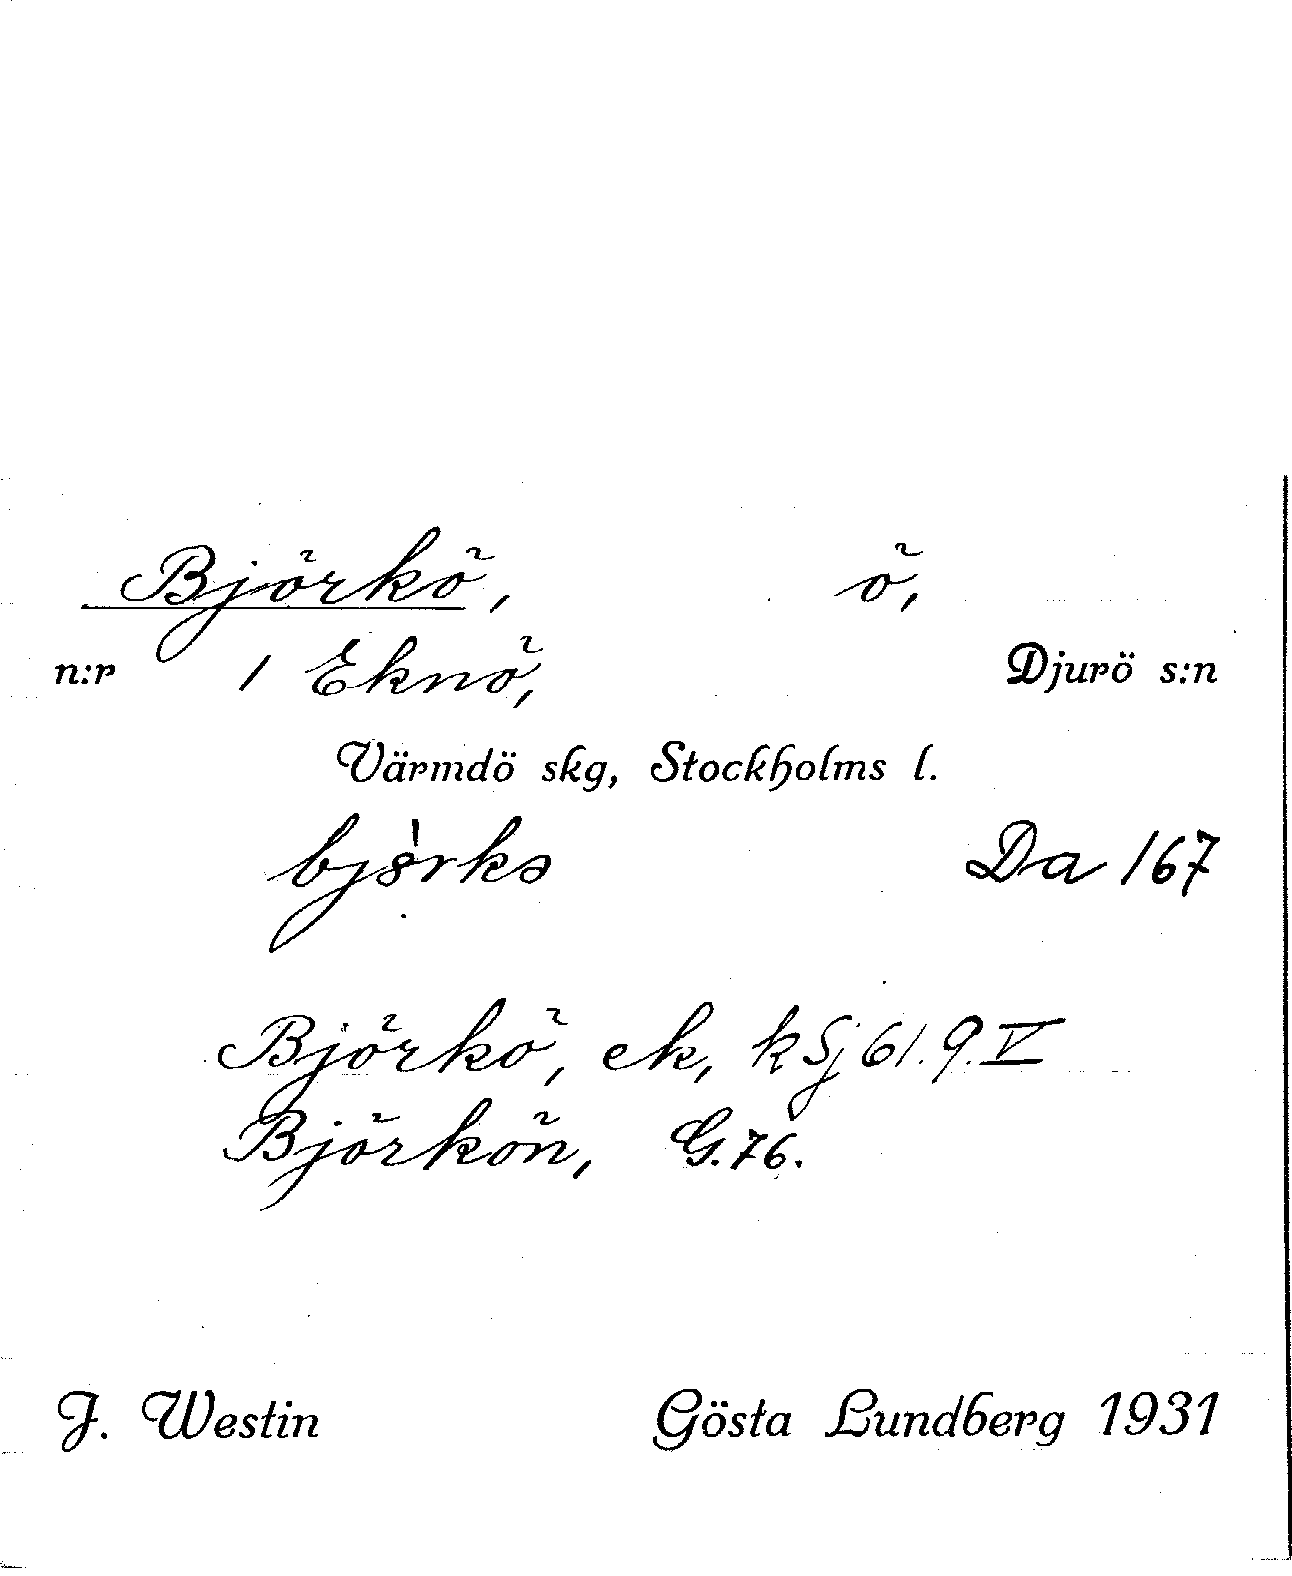 Björkö, ö,
n:r 1 Eknö, Djurö s:n
Värmdö skg, Stockholms l.
Da 167
Björkö, ek, k Sj 61.9.V
Björkön, G.76.
J. Westin Gösta Lundberg 1931